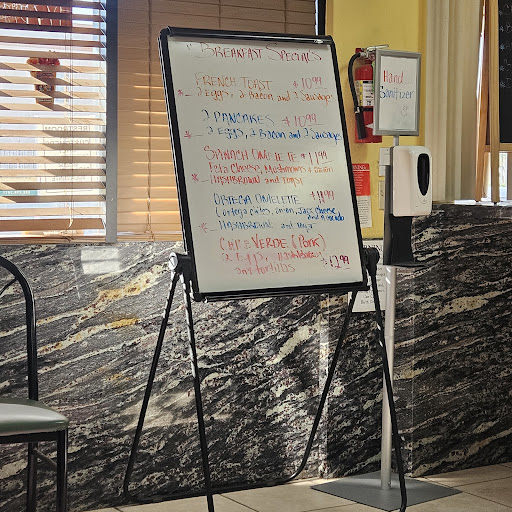 Breakfast Specials
French Toast $10.99
*- 2 Eggs, 2 Bacon and 2 Sausage
2 Pancakes $10.99
*- 2 Eggs, 2 Bacon and 2 Sausage
Spinach Omelette $11.99
Feta Cheese, Mushrooms & Onion
*- Hashbrown and Toast
Ortega Omelette $11.99
Hashbrown and
Chile Verde (Pork)
2 Eggs, Hashbrowns
and tortillas $12.99
Hand
Sanitizer